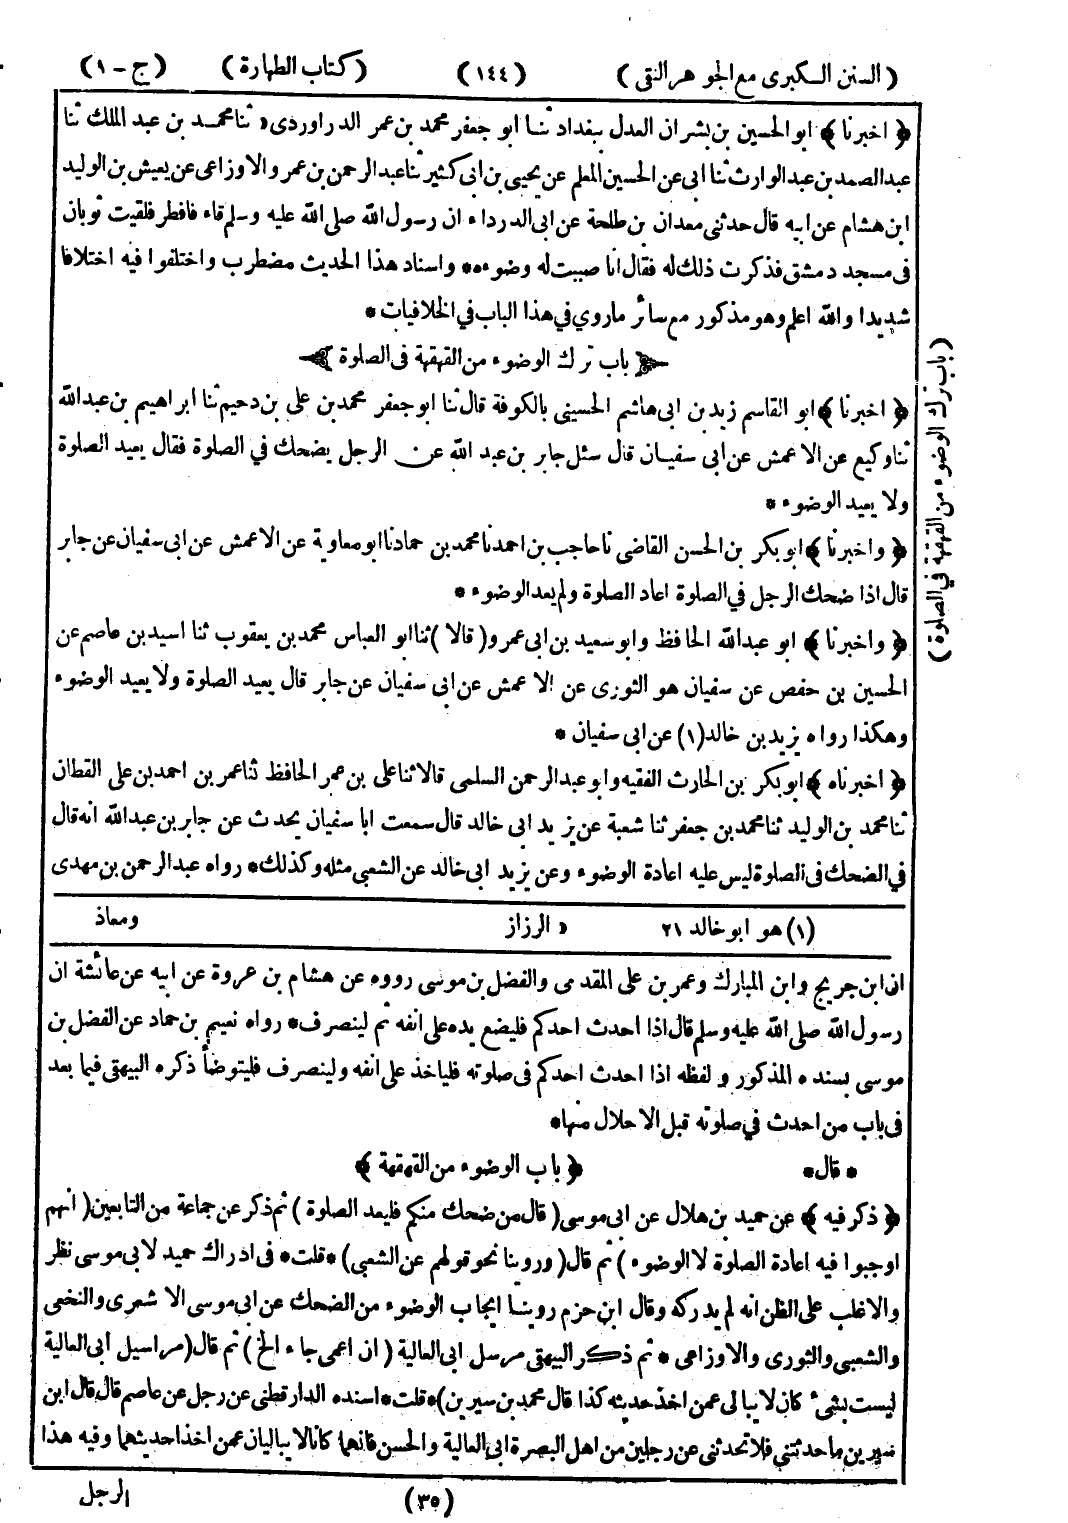 ( السنن الكبرى مع الجوهر النقى ) ( ١٤٤ ) ( كتاب الطهارة ) ( ج - ١ )
﴿ اخبرنا ﴾ ابو الحسين بن بشران العدل ببغداد ثنا ابو جعفر محمد بن عمر الدراوردى « ثنا محمد بن عبد الملك ثنا
عبد الصمد بن عبد الوارث ثنا ابى عن الحسين المعلم عن يحيى بن ابى كثير ثنا عبد الرحمن بن عمر والاوزاعى عن يعيش بن الوليد
ابن هشام عن ابيه قال حدثنى معدان بن طلحة عن ابى الدرداء ان رسول الله صلى الله عليه وسلم قاء فافطر فلقيت ثوبان
فى مسجد دمشق فذكرت ذلك له فقال انا صببت له وضوءه * واسناد هذا الحديث مضطرب واختلفوا فيه اختلافا
شديدا والله اعلم وهو مذكور مع سائر ما روي في هذا الباب في الخلافيات *
باب ترك الوضوء من القهقهة فى الصلوة
﴿ اخبرنا ﴾ ابو القاسم زيد بن ابى هاشم الحسينى بالكوفة قال ثنا ابو جعفر محمد بن على بن دحيم ثنا ابراهيم بن عبد الله
ثنا وكيع عن الاعمش عن ابى سفيان قال سئل جابر بن عبد الله عن الرجل يضحك في الصلوة فقال يعيد الصلوة
ولا يعيد الوضوء *
﴿ واخبرنا ﴾ ابو بكر بن الحسن القاضى نا حاجب بن احمد نا محمد بن حماد نا ابو معاوية عن الاعمش عن ابى سفيان عن جابر
قال اذا ضحك الرجل في الصلوة اعاد الصلوة ولم يعد الوضوء *
﴿ واخبرنا ﴾ ابو عبد الله الحافظ وابو سعيد بن ابى عمرو ( قالا ) ثنا ابو العباس محمد بن يعقوب ثنا اسيد بن عاصم عن
الحسين بن حفص عن سفيان هو الثورى عن الاعمش عن ابى سفيان عن جابر قال يعيد الصلوة ولا يعيد الوضوء
وهكذا رواه يزيد بن خالد (١) عن ابى سفيان *
﴿ اخبرناه ﴾ ابو بكر بن الحارث الفقيه وابو عبد الرحمن السلمى قالا ثنا على بن عمر الحافظ ثنا عمر بن احمد بن على القطان
ثنا محمد بن الوليد ثنا محمد بن جعفر ثنا شعبة عن يزيد ابى خالد قال سمعت ابا سفيان يحدث عن جابر بن عبد الله انه قال
في الضحك فى الصلوة ليس عليه اعادة الوضوء وعن يزيد ابى خالد عن الشعبي مثله وكذلك * رواه عبد الرحمن بن مهدى
(١) هو ابو خالد ٢١ « الرزاز ومعاذ
ان ابن جريج وابن المبارك وعمر بن على المقدمى والفضل بن موسى رووه عن هشام بن عروة عن ابيه عن عائشة ان
رسول الله صلى الله عليه وسلم قال اذا احدث احدكم فليضع يده على انفه ثم لينصرف * رواه نعيم بن حماد عن الفضل بن
موسى بسنده المذكور ولفظه اذا احدث احدكم فى صلوته فلياخذ على انفه ولينصرف فليتوضأ ذكره البيهقى فيما بعد
فى باب من احدث في صلوته قبل الاحلال منها *
* قال * ﴿ باب الوضوء من القهقهة ﴾
﴿ ذكر فيه ﴾ عن حميد بن هلال عن ابى موسى ( قال من ضحك منكم فليعد الصلوة ) ثم ذكر عن جماعة من التابعين ( انهم
اوجبوا فيه اعادة الصلوة لا الوضوء ) ثم قال ( وروينا نحو قولهم عن الشعبي ) * قلت * فى ادراك حميد لابى موسى نظر
والاغلب على الظن انه لم يدركه وقال ابن حزم روينا ايجاب الوضوء من الضحك عن ابى موسى الاشعرى والنخعى
والشعبى والثورى والاوزاعى * ثم ذكر البيهقى مرسل ابى العالية ( ان اعمى جاء الخ ) ثم قال ( مراسيل ابى العالية
ليست بشىء كان لا يبالى عمن اخذ حديثه كذا قال محمد بن سيرين ) * قلت * اسنده الدارقطنى عن رجل عن عاصم قال قال ابن
سيرين ما حدثتني فلا تحدثنى عن رجلين من اهل البصرة ابى العالية والحسن فانهما كانا لا يباليان عمن اخذا حديثهما وفيه هذا
( ٣٥ ) الرجل
( باب ترك الوضوء من القهقهة في الصلوة )